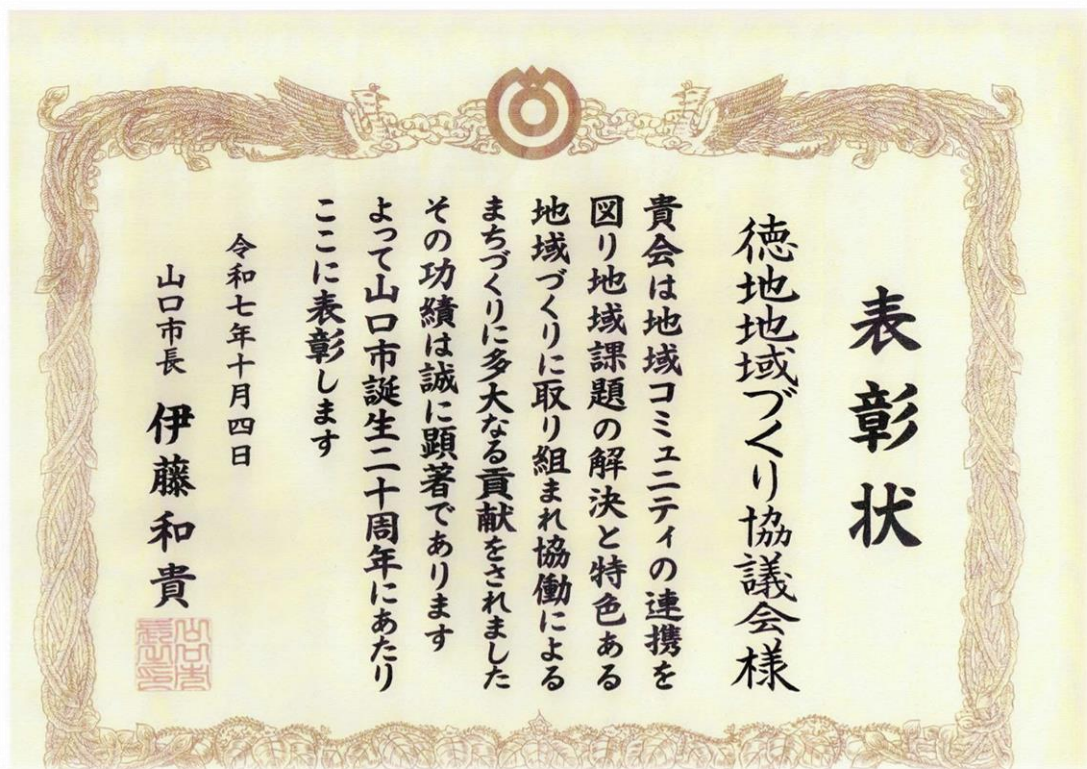 表彰状
徳地地域づくり協議会様
貴会は地域コミュニティの連携を
図り地域課題の解決と特色ある
地域づくりに取り組まれ協働による
まちづくりに多大なる貢献をされました
その功績は誠に顕著であります
よって山口市誕生二十周年にあたり
ここに表彰します
令和七年十月四日
山口市長 伊藤和貴